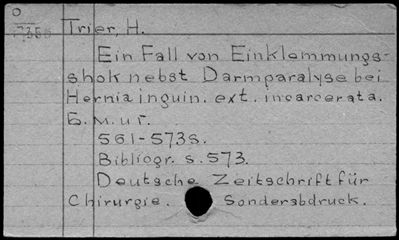 O
17355
Trier, H.
Ein Fall von Einklemmungs-
shok nebst Darmparalyse bei
Hernia inguin. ext. incarcerata.
6. m. u r.
561-573s.
Bibliogr. s. 573.
Deutsche Zeitschrift für
Chirurgie. Sonderabdruck.